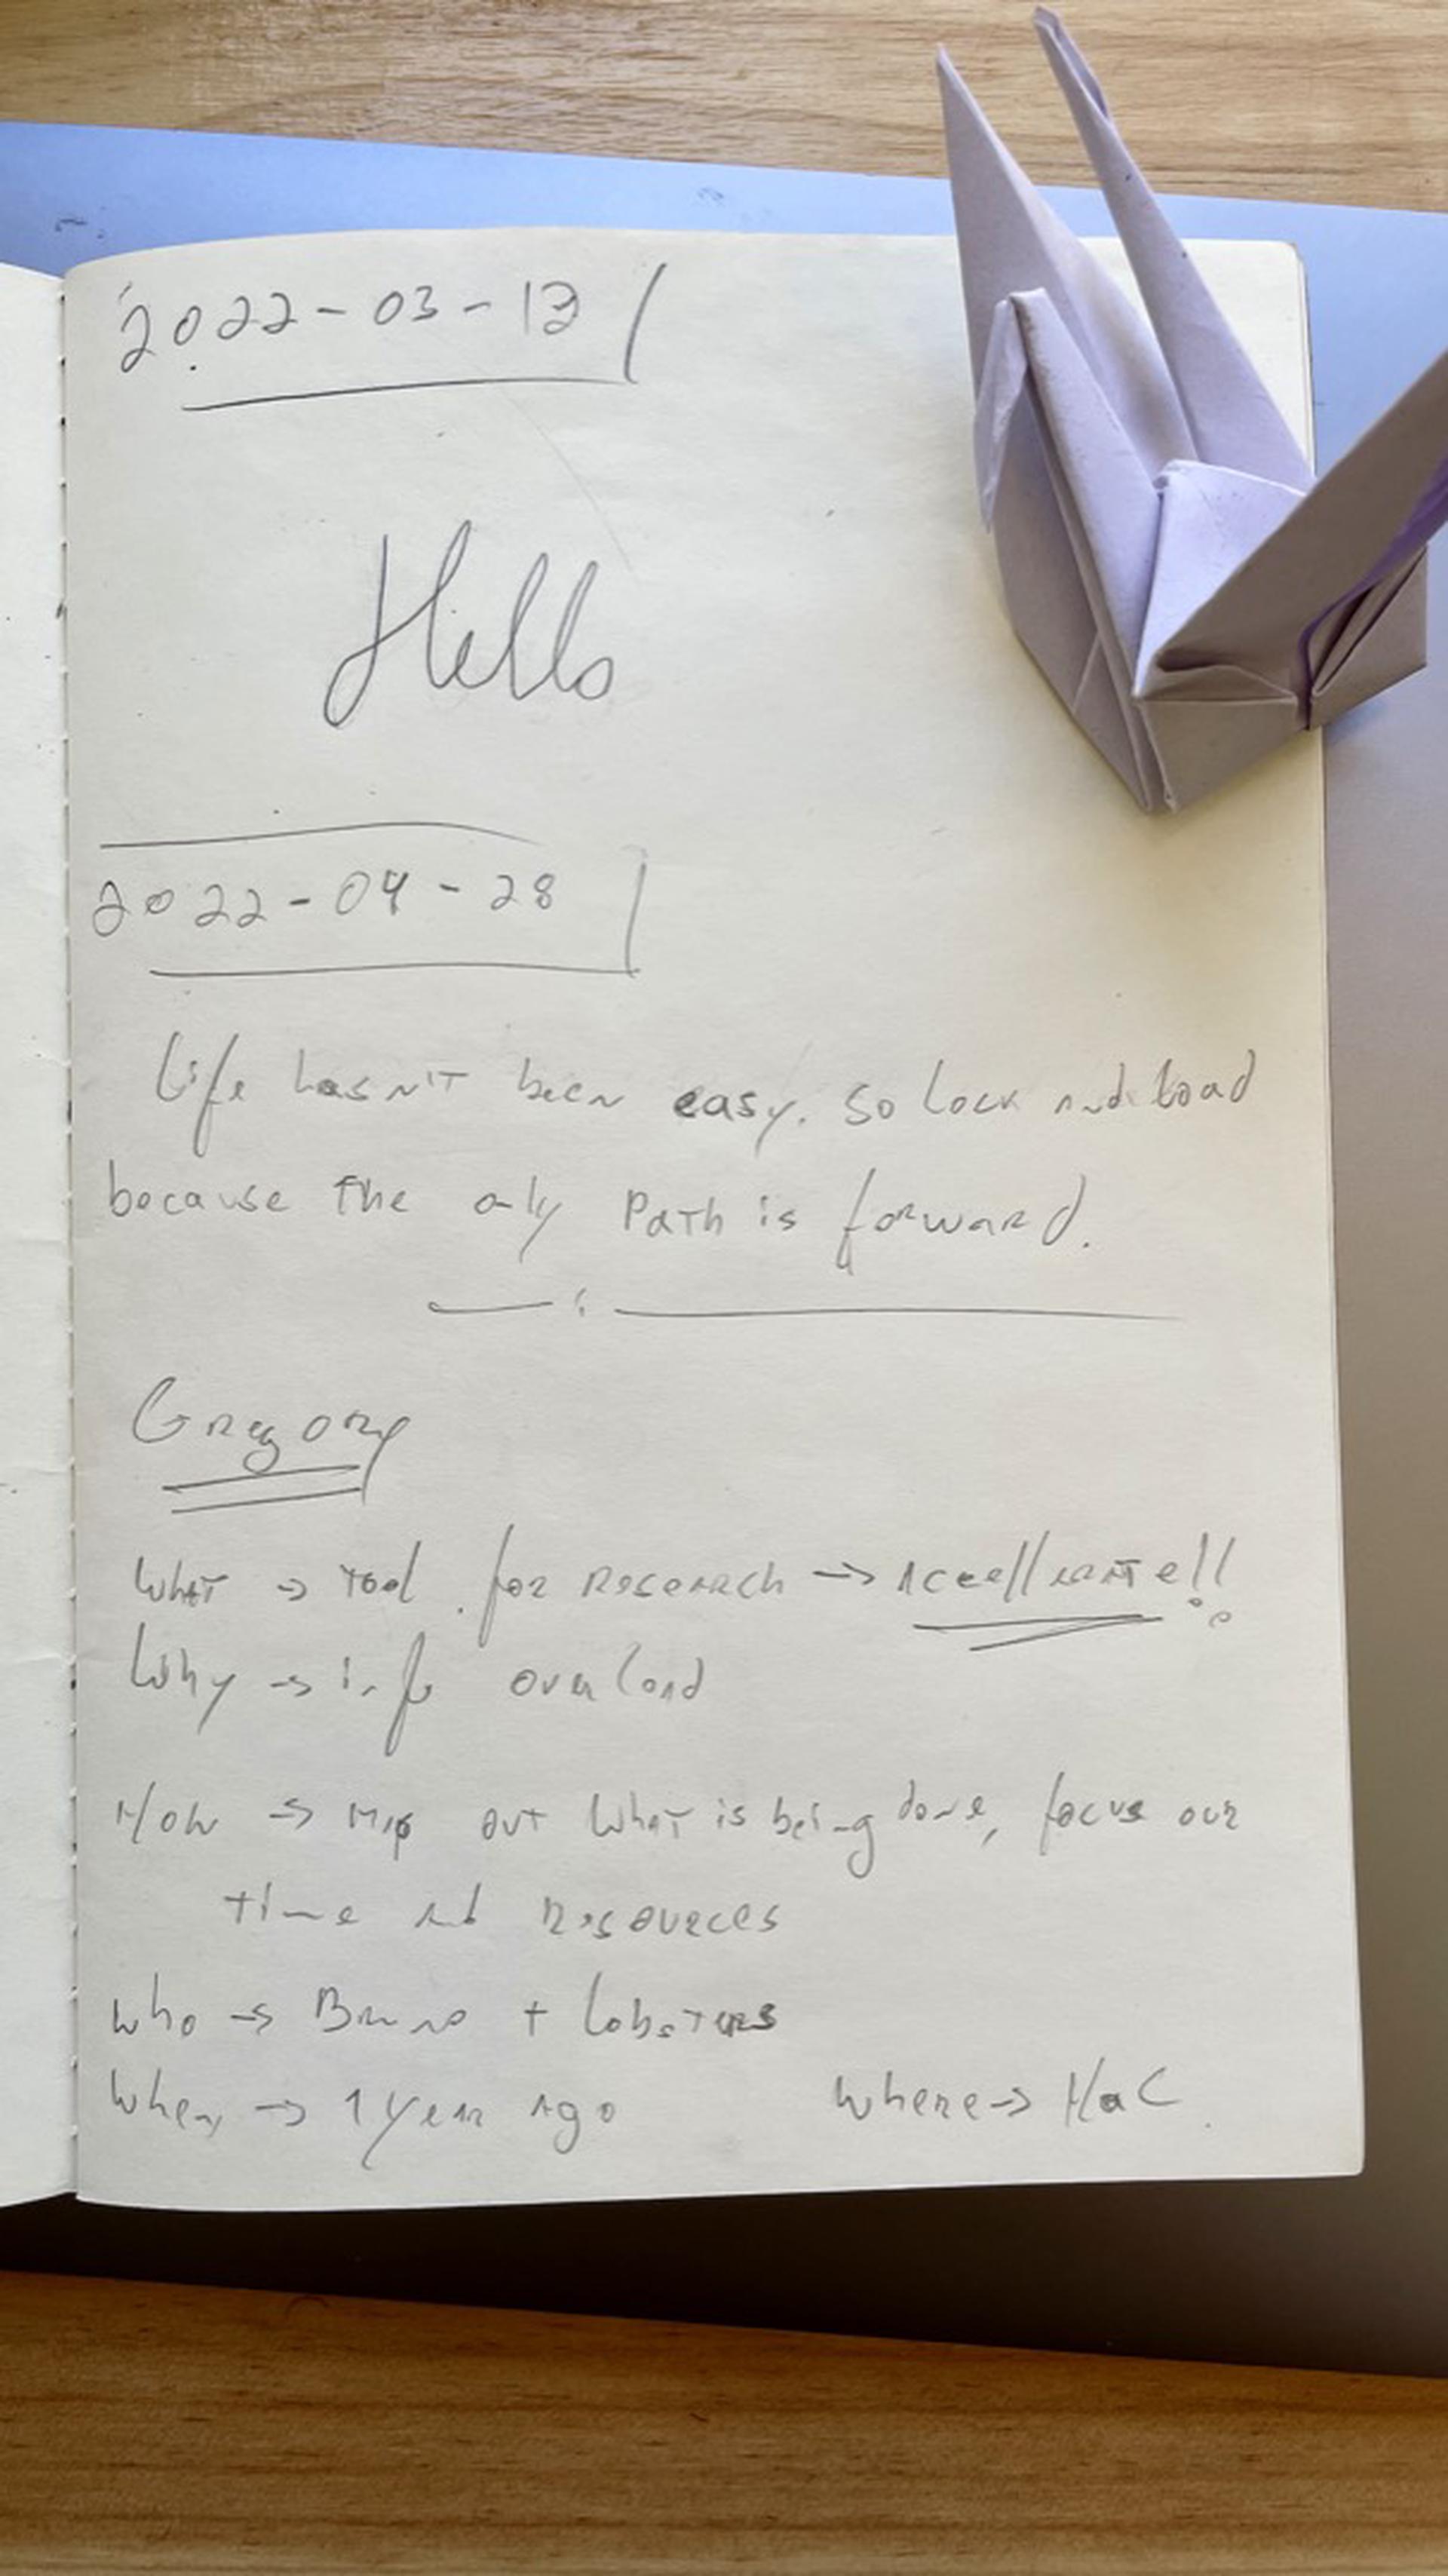 2022-03-12
Hello
2022-04-28
Life hasn't been easy. So lock and load
because the only Path is forward.
Gregory
What → Tool for research → accellerate!!
Why → info overload
How → Map out what is being done, focus our
time and resources
Who → Bruno + lobsters
When → 1 year ago
Where → HaC